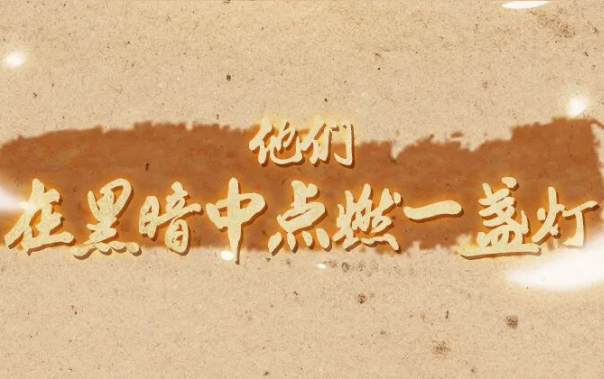 他们
在黑暗中点燃一盏灯